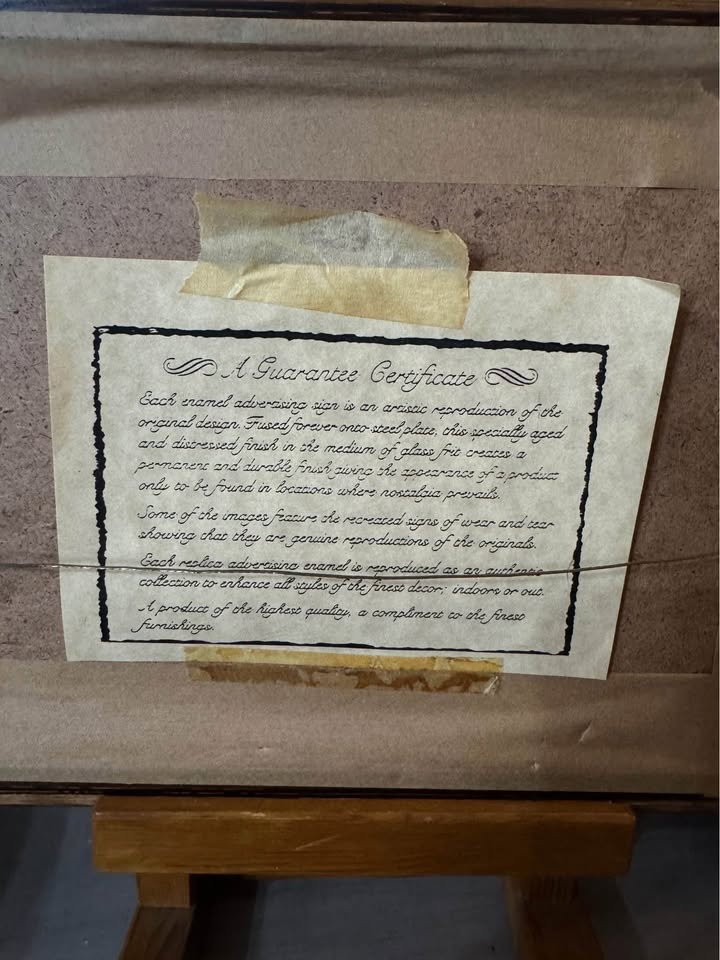 A Guarantee Certificate
Each enamel advertising sign is an artistic reproduction of the
original design. Fused forever onto steel plate, this specially aged
and distressed finish in the medium of glass frit creates a
permanent and durable finish giving the appearance of a product
only to be found in locations where nostalgia prevails.
Some of the images feature the recreated signs of wear and tear
showing that they are genuine reproductions of the originals.
Each replica advertising enamel is reproduced as an authentic
collection to enhance all styles of the finest decor; indoors or out.
A product of the highest quality, a compliment to the finest
furnishings.